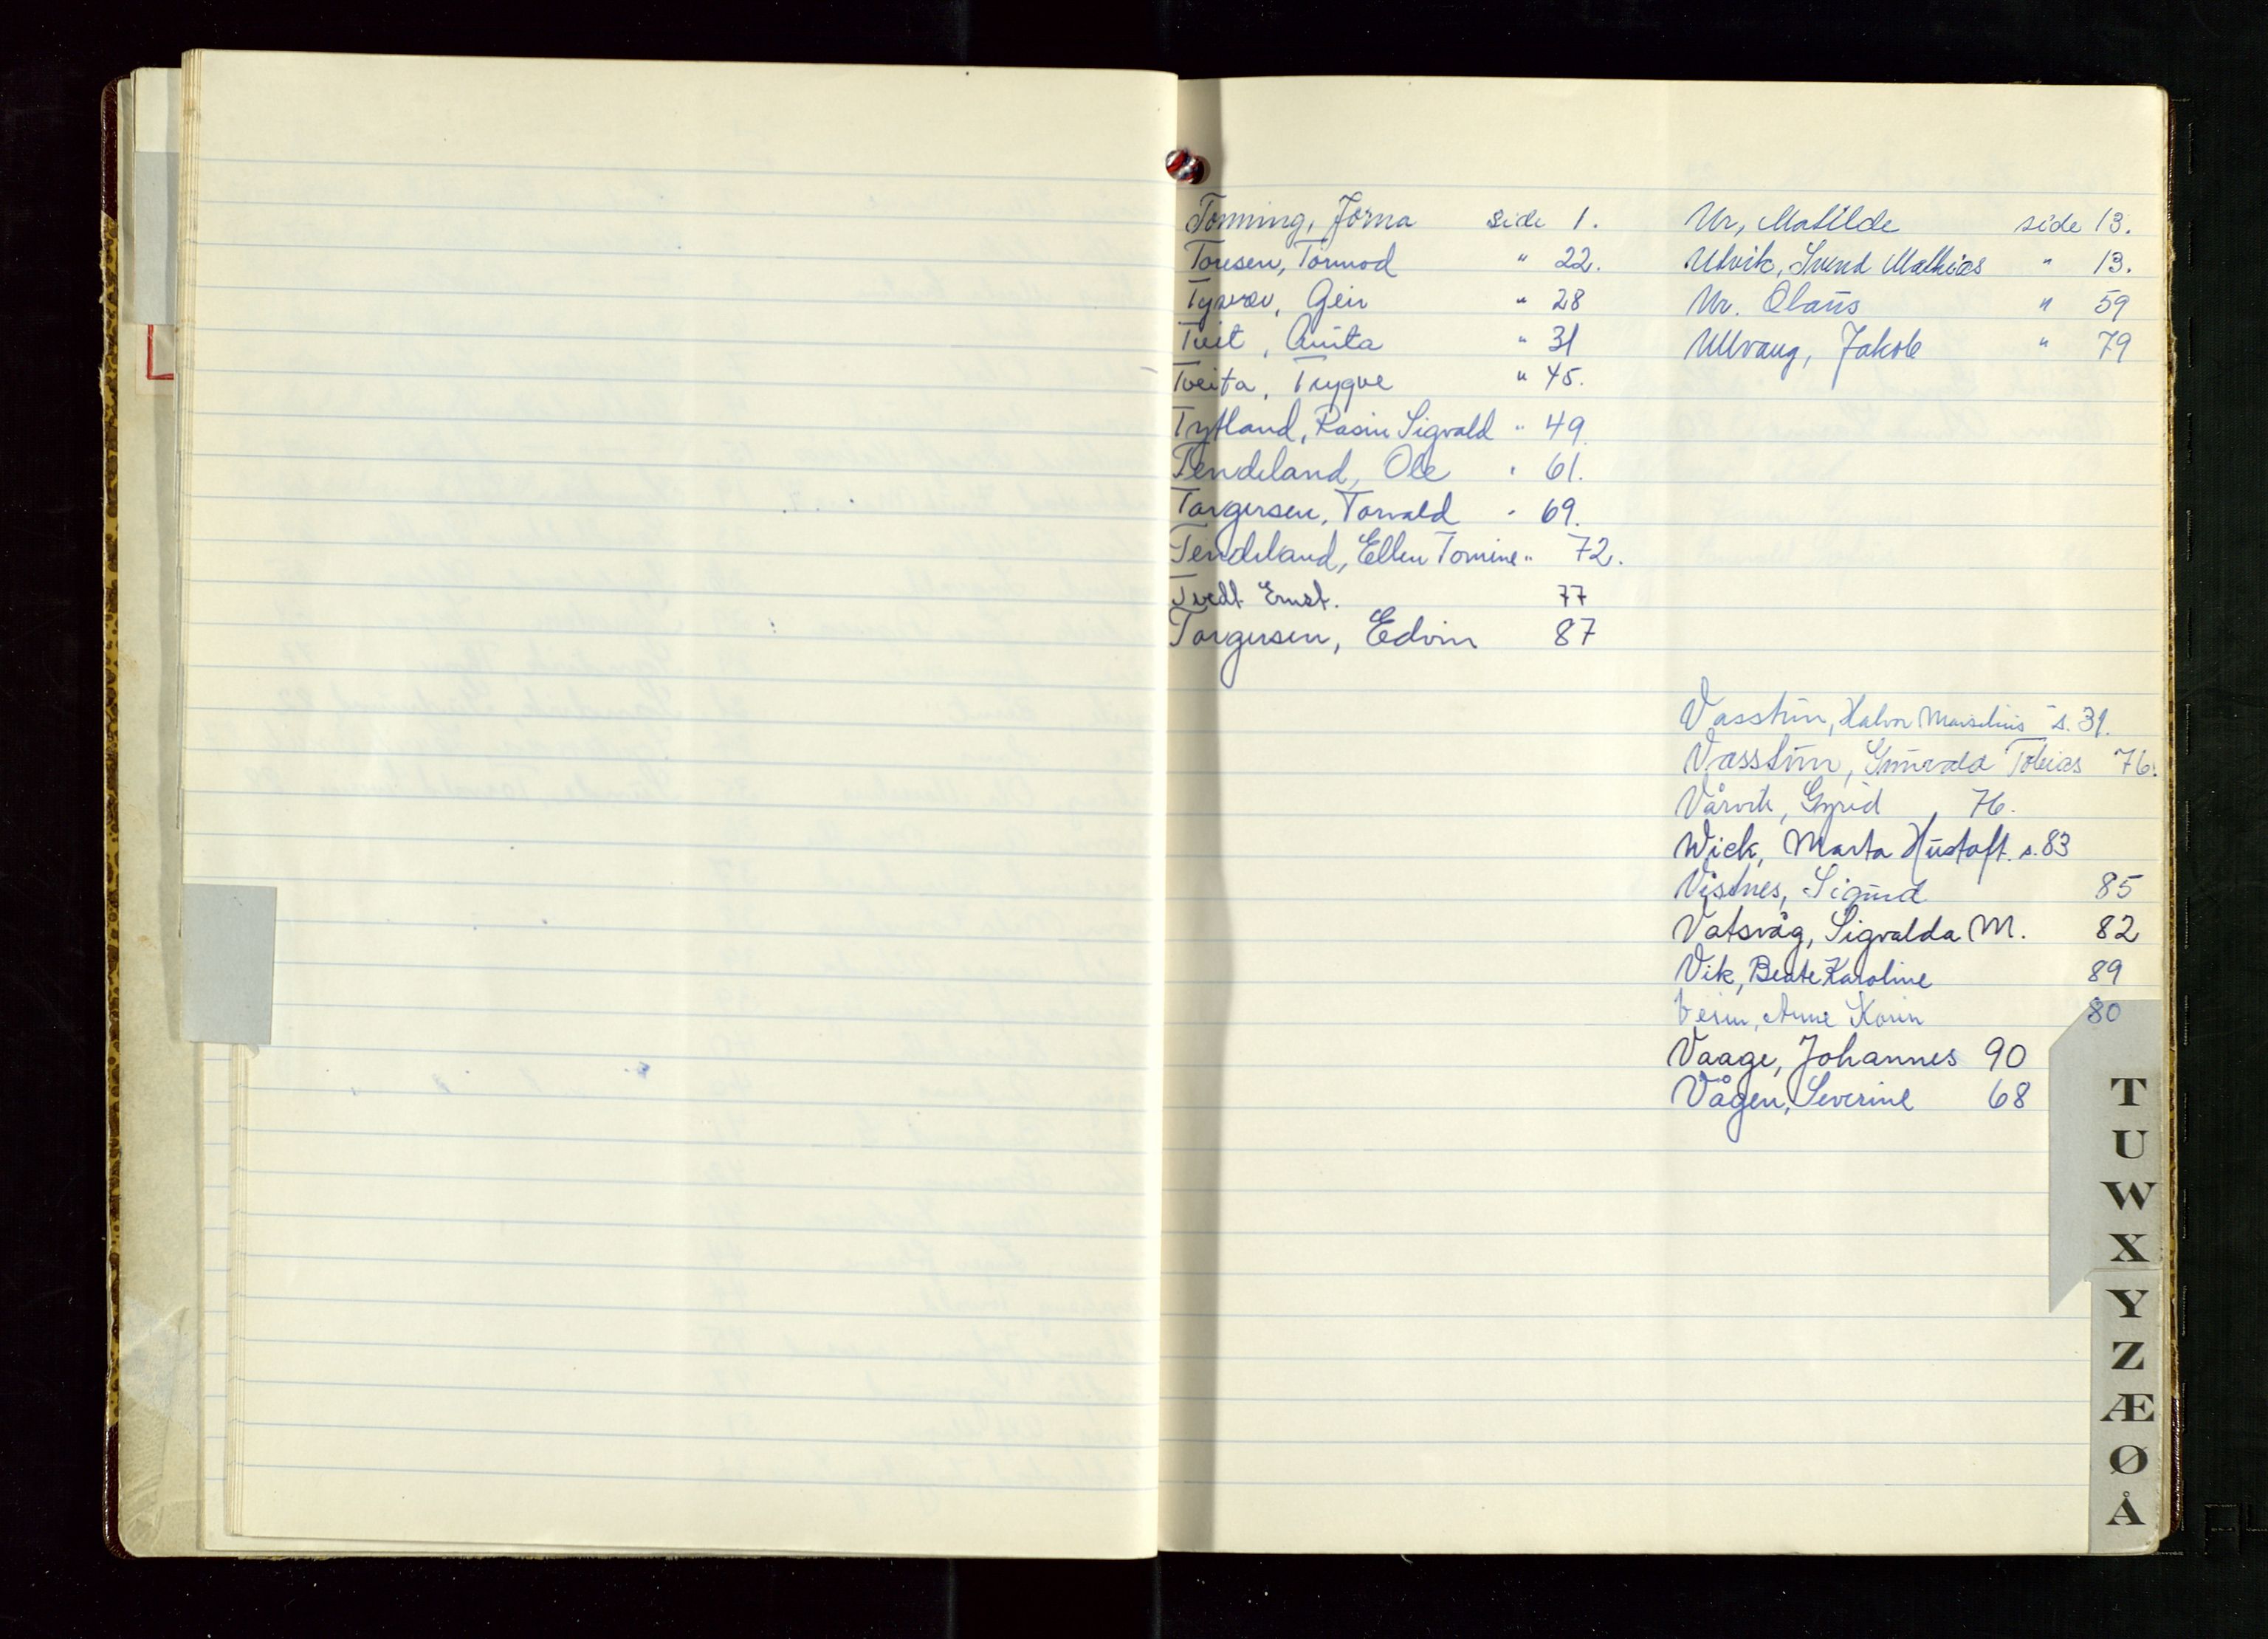 Tonning, Jorna side 1.
Toresen, Tormod " 22.
Tysvær, Geir " 28
Tveit, Anita " 31
Tveita, Trygve " 45.
Tytland, Rasin Sigvald " 49.
Tendeland, Ole " 61.
Torgersen, Torvald " 69.
Tendeland, Ellen Tomine " 72.
Tvedt Ernst. 77
Torgersen, Edvin 87
Ur, Matilde side 13.
Utvik, Svend Mathias " 13.
Ur. Olaus " 59
Ullvang, Jakob " 79
Vasstun, Halvor s. 31.
Vasstun, Gunvald Tobias 76.
Vårvik, Gyrid 76.
Wick, Marta Hustoft. s. 83
Vistnes, Sigurd 85
Vatsvåg, Sigvalda M. 82
Vik, Beate Karoline 89
Anne Karin 80
Vaage, Johannes 90
Vågen, Severine 68
T
U
W
X
Y
Z
Æ
Ø
Å
L